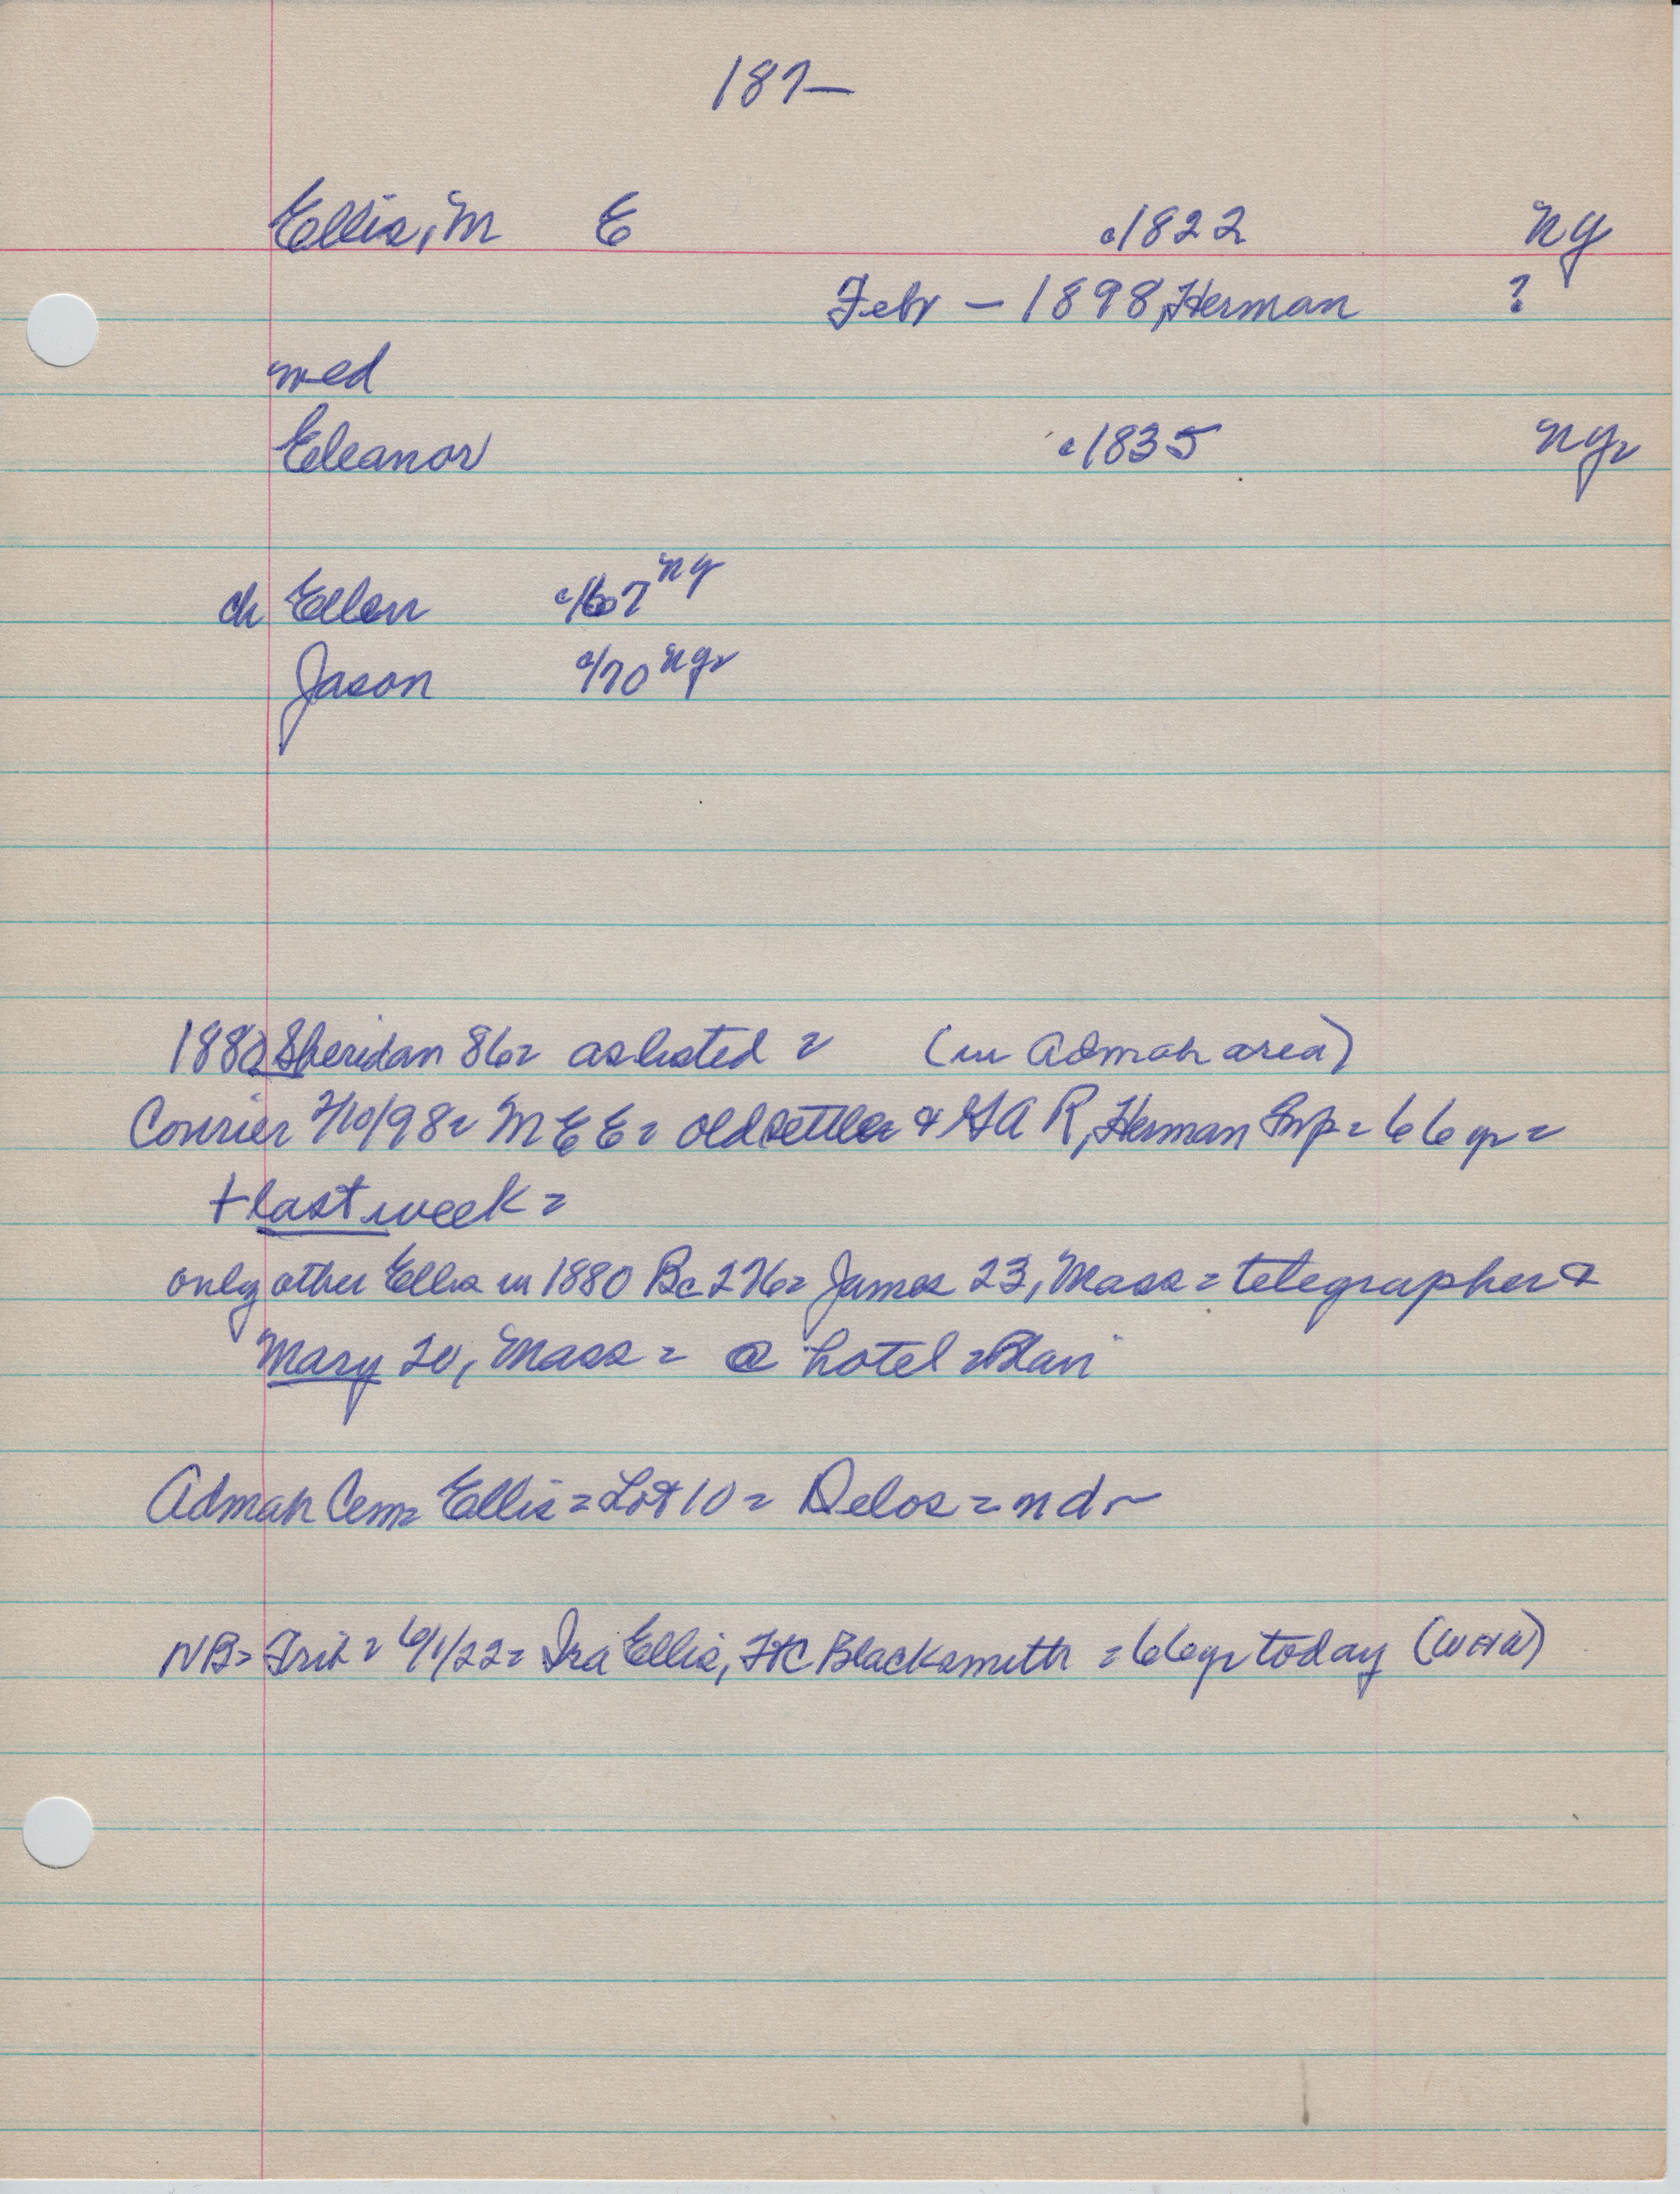 187—
Ellis, M E c1822 NY
Febr — 1898, Herman ?
med
Eleanor c1835 NY=
ch Ellen c/67 NY
Jason c/70 NY=
1880 Sheridan 86= as listed = (in Admah area)
Courier 2/10/98= M E E= old settler & GAR, Herman Twp= 66 yr=
+ last week=
only other Ellis in 1880 Bc 276= James 23, Mass= telegrapher &
Mary 20, Mass= @ hotel= Blair
Admah Cem= Ellis= Lot 10= Delos= nd
NB= Trib= 6/1/22= Ira Ellis, FtC Blacksmith = 66 yr today